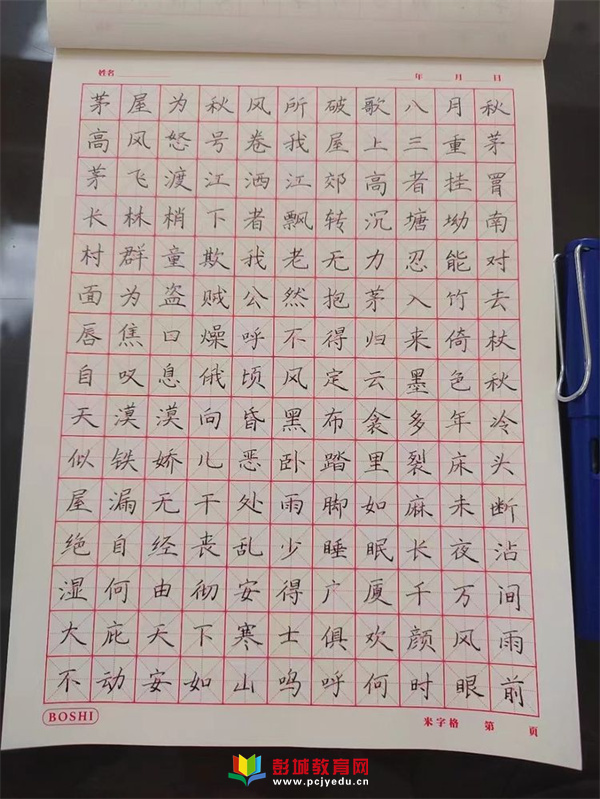 姓名 年 月 日
茅屋为秋风所破歌八月秋
高风怒号卷我屋上三重茅
茅飞渡江洒江郊高者挂罥
长林梢下者飘转沉塘坳南
村群童欺我老无力忍能对
面为盗贼公然抱茅入竹去
唇焦口燥呼不得归来倚杖
自叹息俄顷风定云墨色秋
天漠漠向昏黑布衾多年冷
似铁娇儿恶卧踏里裂床头
屋漏无干处雨脚如麻未断
绝自经丧乱少睡眠长夜沾
湿何由彻安得广厦千万间
大庇天下寒士俱欢颜风雨
不动安如山呜呼何时眼前
BOSHI 米字格 第 页
彭城教育网
www.pcjyedu.cn